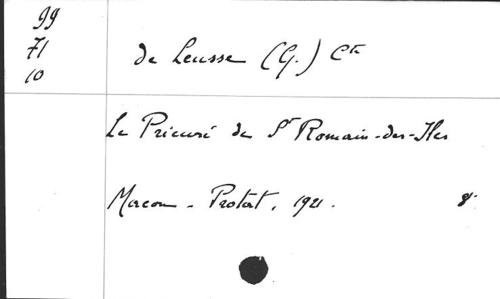 99
71
10
de Leusse (G.) Cte
Le Prieuré de St Romain-des-Iles
Macon - Protat, 1921.
8°